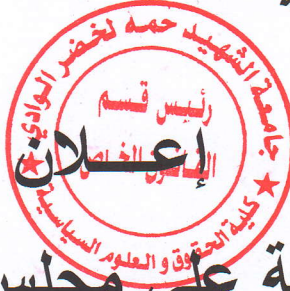 جامعة الشهيد حمه لخضر الوادي
رئيس قسم
القانون الخاص
إعلان
كلية الحقوق و العلوم السياسية
على مجلس